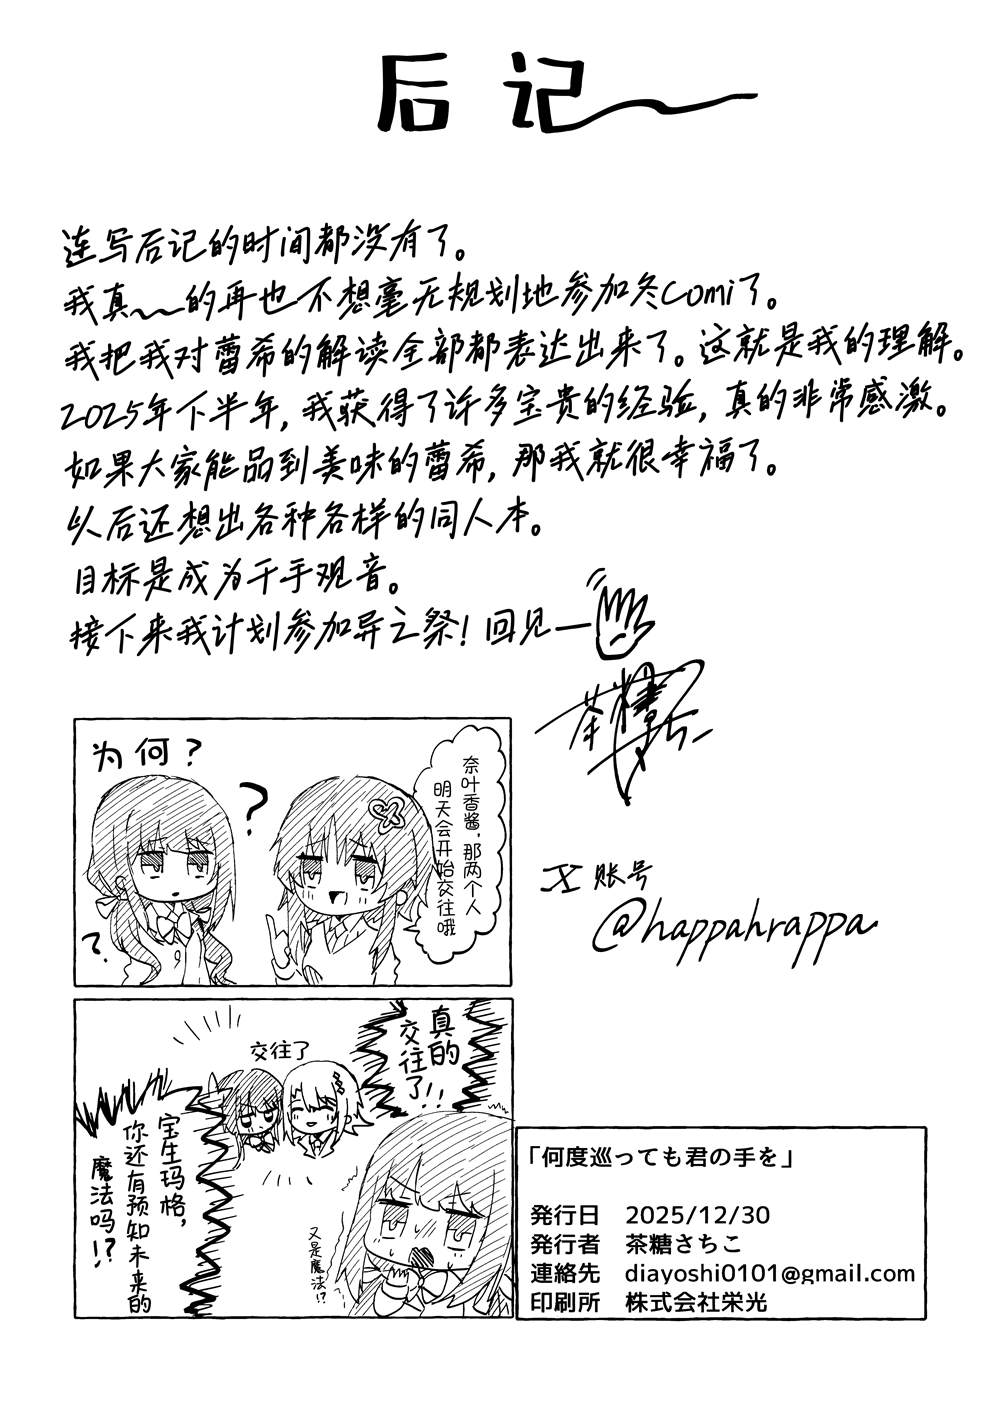 后记
连写后记的时间都没有了。
我真~~的再也不想毫无规划地参加冬Comi了。
我把我对蕾希的解读全部都表达出来了。这就是我的理解。
2025年下半年,我获得了许多宝贵的经验,真的非常感激。
如果大家能品到美味的蕾希,那我就很幸福了。
以后还想出各种各样的同人本。
目标是成为千手观音。
接下来我计划参加异之祭!回见—
茶糖さち
X账号
@happahrappa
为何?
?
?
奈叶香酱,那两个人
明天会开始交往哦
真的
交往了!!
交往了
宝生玛格,
你还有预知未来的
魔法吗!?
又是魔法!?
「何度巡っても君の手を」
発行日 2025/12/30
発行者 茶糖さちこ
連絡先 diayoshi0101@gmail.com
印刷所 株式会社栄光